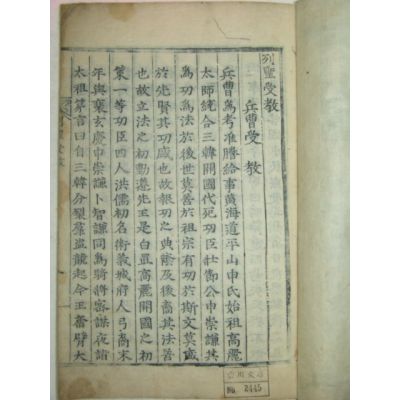 列聖受教
兵曹受 教
兵曹爲考准謄給事黃海道平山申氏始祖高麗
太師統合三韓開國代死功臣壯節公申崇謙其
爲功爲法於後世莫善於祖宗有功於斯文莫盛
於先賢其功盛也故報功之典蔭及後裔其法善
也故立法之初動遵先王是白置高麗開國之初
策一等功臣四人洪儒初名術義城府人弓裔末
年與裵玄慶申崇謙卜智謙同爲騎將密謀夜詣
太祖第言曰自三韓分裂群盜競起今王奮臂大
列聖受教
No. 2445